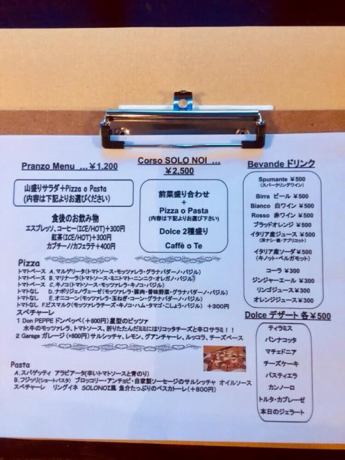 Pranzo Menu …¥1,200
山盛りサラダ+Pizza o Pasta
(内容は下記よりお選びください)
食後のお飲み物
エスプレッソ、コーヒー(ICE/HOT)+300円
紅茶(ICE/HOT)+300円
カプチーノ/カフェラテ+400円
Corso SOLO NOI …
¥2,500
前菜盛り合わせ
+
Pizza o Pasta
(内容は下記よりお選び下さい)
Dolce 2種盛り
Caffè o Te
Bevande ドリンク
Spumante ¥500
(スパークリングワイン)
Birra ビール ¥500
Bianco 白ワイン ¥500
Rosso 赤ワイン ¥500
ブラッドオレンジ ¥500
イタリア産ジュース¥500
イタリア産ソーダ ¥600
(キノット・ベルガモット)
コーラ ¥300
ジンジャーエール ¥300
リンゴジュース ¥300
オレンジジュース ¥300
Pizza
トマトベース A. マルゲリータ(トマトソース・モッツァレラ・グラナパダーノ・バジル)
トマトベース B. マリナーラ(トマトソース・ミニトマト・ニンニク・オレガノ・バジル)
トマトベース C. キノコ(トマトソース・モッツァレラ・キノコ・バジル)
トマトなし D. ナポリジェノベーゼ(モッツァレラ・豚肉・香味野菜・グラナパダーノ・バジル)
トマトなし E. オニコーン(モッツァレラ・玉ねぎ・コーン・グラナパダーノ・バジル)
トマトなし F. ビスマルク(モッツァレラチーズ・キノコ・ハム・タマゴ・こしょう) +300円
スペチャーレ
1 Don PEPPE ドンペッペ(+800円)星型のピッツァ
水牛のモッツァレラ、トマトソース、折りたたんだミミにはリコッタチーズと辛口サラミ!!
2 Garage ガレージ(+800円)サルシッチャ、レモン、グアンチャーレ、ルッコラ、チーズベース
Dolce デザート 各¥500
ティラミス
パンナコッタ
マチェドニア
チーズケーキ
パスティエラ
カンノーロ
トルタ・カプレーゼ
本日のジェラート
Pasta
A. スパゲッティ アラビアータ(辛いトマトソースと青のり)
B. フジッリ(ショートパスタ) ブロッコリー・アンチョビ・自家製ソーセージのサルシッチャ オイルソース
スペチャーレ リングイネ SOLONOI風 魚介たっぷりのペスカトーレ(+800円)